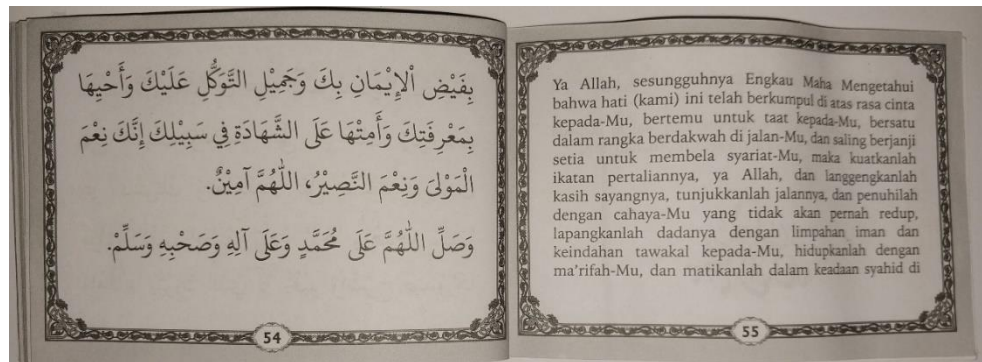 بِفَيْضِ الْإِيْمَانِ بِكَ وَجَمِيْلِ التَّوَكُّلِ عَلَيْكَ وَأَحْيِهَا
بِمَعْرِفَتِكَ وَأَمِتْهَا عَلَى الشَّهَادَةِ فِي سَبِيْلِكَ إِنَّكَ نِعْمَ
الْمَوْلَىٰ وَنِعْمَ النَّصِيْرُ، اللّٰهُمَّ آمِيْنٌ.
وَصَلِّ اللّٰهُمَّ عَلَى مُحَمَّدٍ وَعَلَى آلِهِ وَصَحْبِهِ وَسَلِّمْ.
54
Ya Allah, sesungguhnya Engkau Maha Mengetahui
bahwa hati (kami) ini telah berkumpul di atas rasa cinta
kepada-Mu, bertemu untuk taat kepada-Mu, bersatu
dalam rangka berdakwah di jalan-Mu, dan saling berjanji
setia untuk membela syariat-Mu, maka kuatkanlah
ikatan pertaliannya, ya Allah, dan langgengkanlah
kasih sayangnya, tunjukkanlah jalannya, dan penuhilah
dengan cahaya-Mu yang tidak akan pernah redup,
lapangkanlah dadanya dengan limpahan iman dan
keindahan tawakal kepada-Mu, hidupkanlah dengan
ma'rifah-Mu, dan matikanlah dalam keadaan syahid di
55